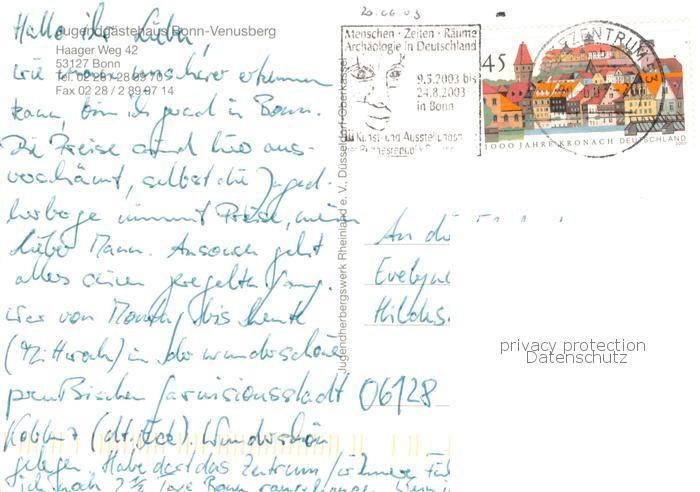 20.06.03
Jugendgästehaus Bonn-Venusberg
Haager Weg 42
53127 Bonn
Tel. 02 28 / 28 99 70
Fax 02 28 / 2 89 97 14
Hallo ihr Lieben,
wie man unschwer erkennen
kann, bin ich grad in Bonn.
Die Preise sind hier aus-
verschämt, selbst die Jugend-
herberge nimmt Preise, mein
lieber Mann. Ansonsten geht
alles seinen geregelten Gang.
War von Montag bis heute
(Mittwoch) in der wunderschönen
preußischen Garnisionsstadt
Koblenz (dt. Eck). Wunderschön
gelegen. Habe dort das Zentrum
ich noch 2 ½ Tage Bonn
Jugendherbergswerk Rheinland e. V., Düsseldorf-Oberkassel
Menschen · Zeiten · Räume
Archäologie in Deutschland
9.5.2003 bis
24.8.2003
in Bonn
Kunst- und Ausstellungs
der Bundesrepublik
BRIEFZENTRUM 53
45
1000 JAHRE KRONACH DEUTSCHLAND
2003
An die
Evelyne
Hildes
06128
privacy protection
Datenschutz